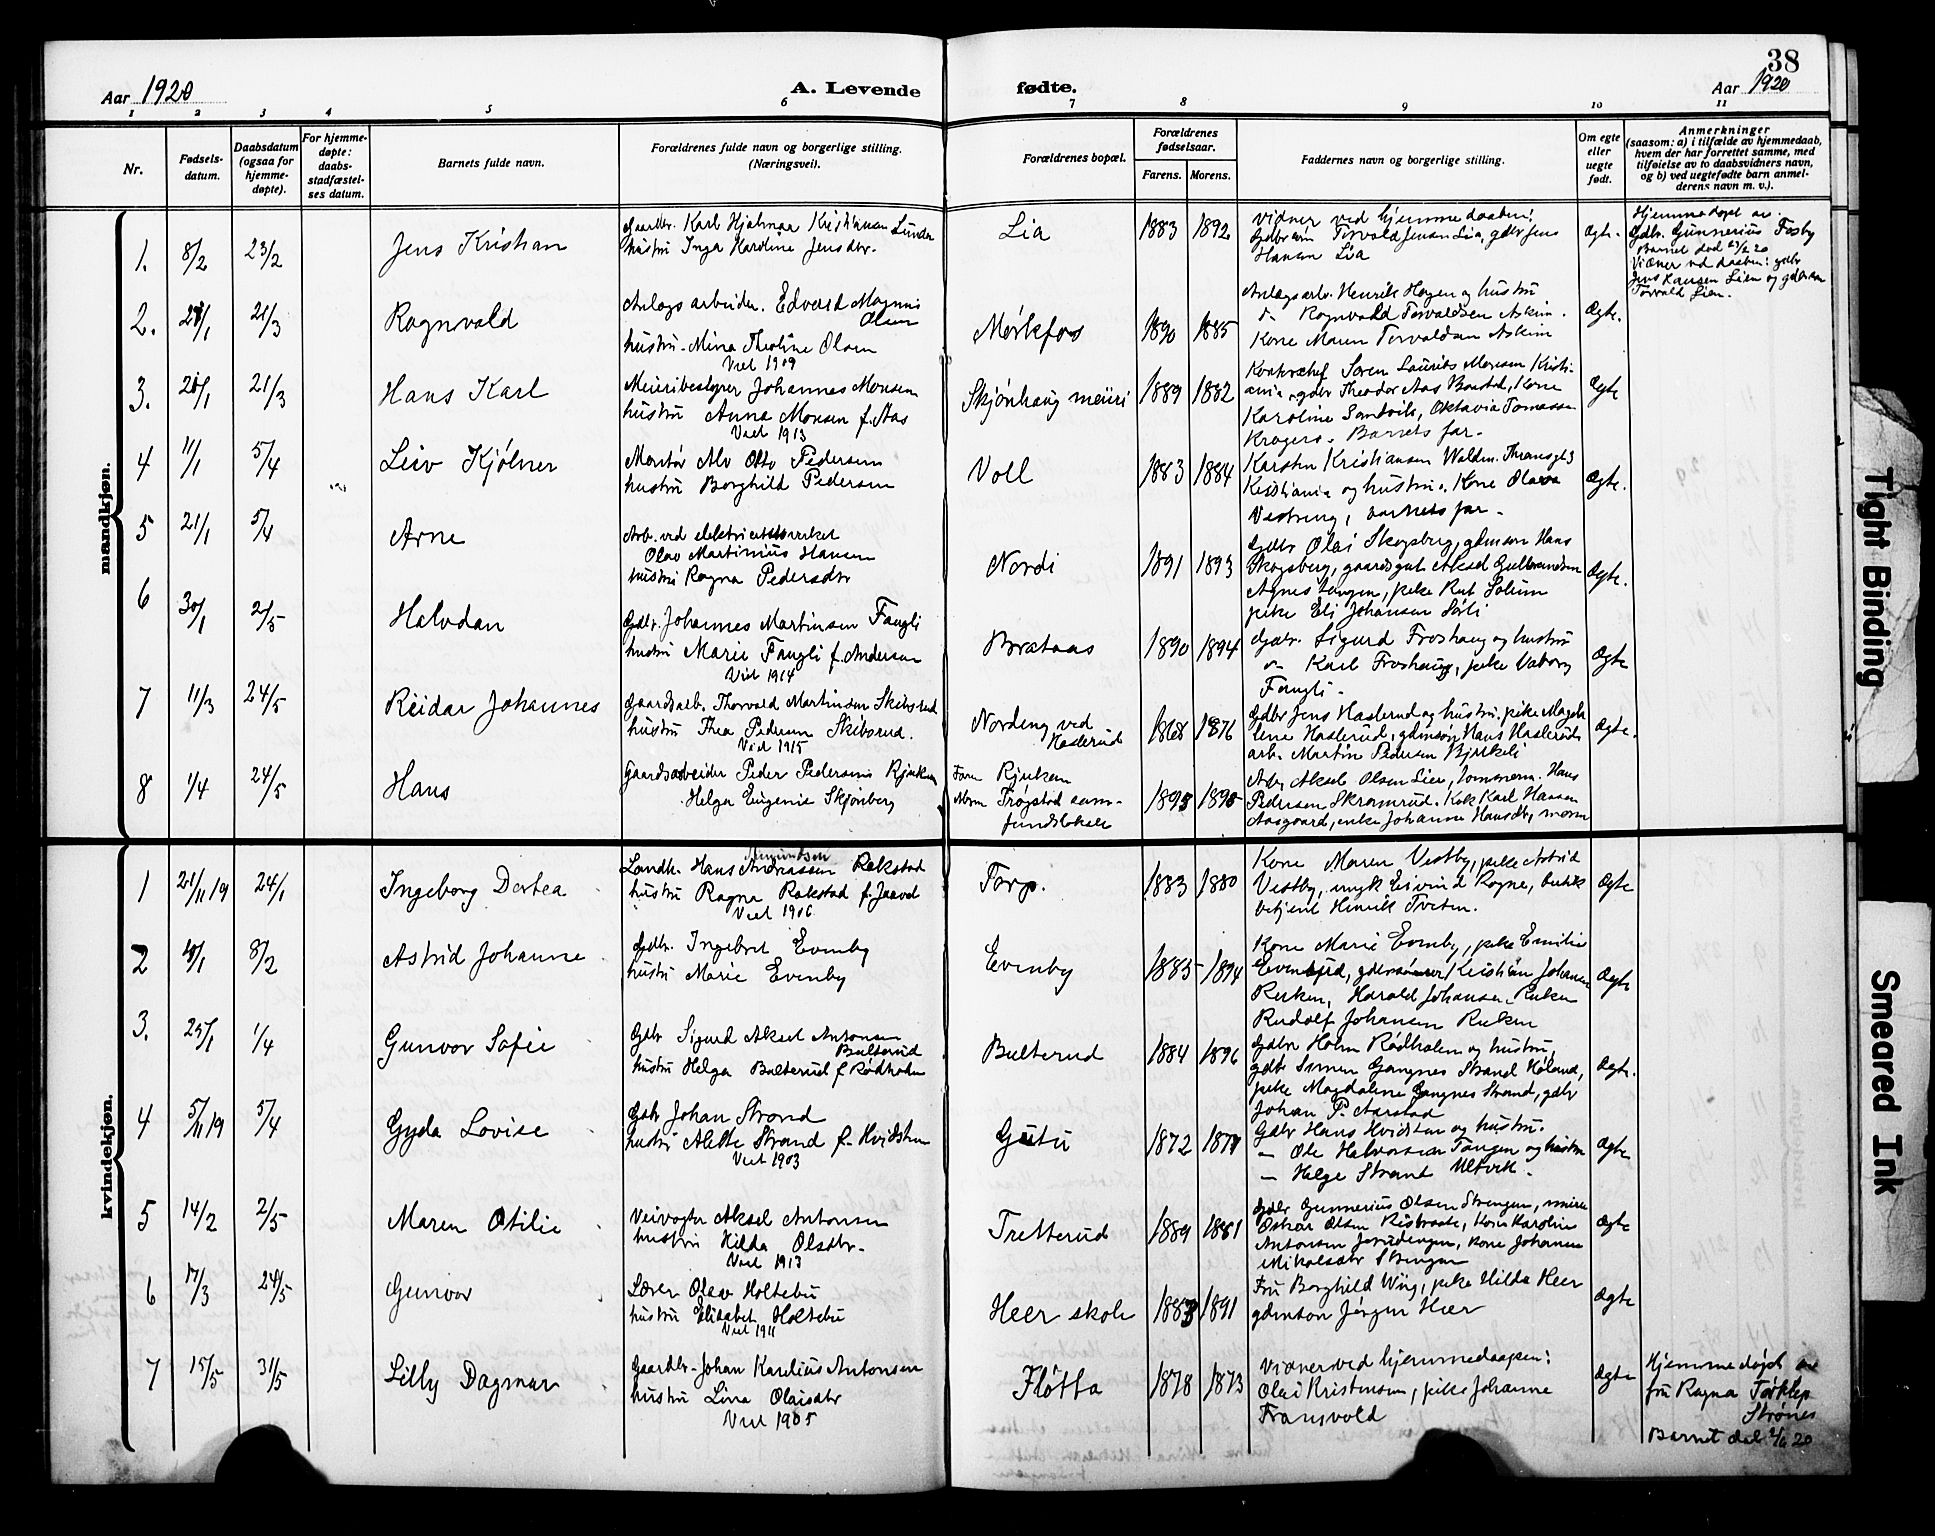 38
Aar 1920
A. Levende
fødte.
Aar 1920
1 2 3 4 5 6 7 8 9 10 11
Nr.
Fødsels-
datum.
Daabsdatum
(ogsaa for
hjemme-
døpte).
For hjemme-
døpte:
daabs-
stadfæstel-
ses datum.
Barnets fulde navn.
Forældrenes fulde navn og borgerlige stilling.
(Næringsvei).
Forældrenes bopæl.
Forældrenes
fødselsaar.
Farens. Morens.
Faddernes navn og borgerlige stilling.
Om egte
eller
uegte
født.
Anmerkninger
(saasom: a) i tilfælde av hjemmedaab,
hvem der har forrettet samme, med
tilføielse av to daabsvidners navn,
og b) ved uegtefødte barn anmel-
derens navn m. v.).
mandkjøn.
1. 8/2 23/2 Jens Kristian
Gaardbr. Karl Hjalmar Kristiansen Lunder
hustru Inga Hardine Jensdtr.
Lia 1883 1892
Vidner ved hjemmedaaben:
Torvald Jensen Lia, gdbr Jens
Hansen Lia
Ægte.
Hjemmedøpt av
Gdbr. Gunnerius Fosby
Barnet død
Vidner ved daaben: gdbr
Jens Hansen Lien og
Torvald Lien.
2. 21/3 Ragnvald
Anlegsarbeider. Edvard Magnus
Olsen
hustru Mina Theoline Olsen
Viet 1909
Mørkfos 1890 1885
Anlegsarb. Henrik Hagen og hustru
Ragnvald Torvaldsen Askim.
Kone Maren Torvaldsen Askim
Ægte.
3. 21/3 Hans Karl
Meieribestyrer Johannes Monsen
hustru Anna Monsen f. Aas
Viet 1913
Skjønhaug meieri 1889 1882
Kontorchef Søren Laurits Monsen Kristi-
ania, gdbr Theodor Aas Baastad, Kone
Karoline Sandvik, Oktavia Tomassen
Kragerø. Barnets far.
Ægte
4 11/1 5/4 Leiv Kjølner
Montør Alv Otto Pedersen
hustru Borghild Pedersen
Voll 1883 1884
Karsten Kristiansen Waldm. Thransgt 3
Kristiania og hustru. Kone Olava
Vestreng, barnets far.
Ægte.
5 21/1 5/4 Arne
Arb. ved elektricitetsverket
Olav Martinius Hansen
hustru Ragna Pedersdtr
Nordi 1891 1893
Gdbr Olai Skogsberg, gdmsøn Hans
Skogsberg, gaardsgut Aksel Gulbrandsen
Agnes Langen, pike Rut Solum
pike Elj Johansen Sørli
Ægte.
6 30/1 2/5 Halvdan
Gdbr. Johannes Martinsen Fangli
hustru Marie Fangli f. Andersen
Viet 1914
Brataas 1890 1894
Gdbr. Sigurd Froshaug og hustru
Karl Froshaug, pike Valborg
Fangli.
Ægte
7 11/3 24/5 Reidar Johannes
Gaardsarb. Thorvald Martinsen Skibsrud
hustru Thea Pedersen Skibsrud.
Viet 1915
Nordeng ved
Haslerud 1868 1876
Gdbr Jens Haslerud og hustru. pike Magda-
lene Haslerud, gdmsøn Hans Haslerud
arb. Martin Pedersen Bjerkeli
Ægte.
8 1/4 24/5 Hans
Gaardsarbeider Peder Pedersen Rjukan
Helga Eugenie Skjønberg
Faren Rjukan
Moren Trøgstad sam-
fundslokale
Arb. Aksel Olsen Lien, tømmerm. Hans
Pedersen Skramrud. Kok Karl Hansen
Aasgaard, enke Johanne Hansdtr, moren
kvindekjøn.
1 21/11 19 24/1 Ingeborg Dortea
Amundsen
Landh. Hans Andreassen Rakstad
hustru Ragna Rakstad f. Jaavol
Viet 1906
Torp. 1883 1880
Kone Maren Vestby, pike Astrid
Vestby, ungk Eivind Ragne, butik
betjent Henrik Tveten.
Ægte
2 8/2 Astrid Johanne
Gdbr. Ingebret Evenby
hustru Marie Evenby
Evenby 1885 1894
Kone Marie Evenby, pike Emilie
Evenby, gdbrsønner Kristian Johansen
Ruken, Harald Johansen Ruken
Rudolf Johansen Ruken
Ægte
3. 1/4 Gunvor Sofie
Gdbr Sigurd Aksel Antonsen
Bulterud
hustru Helga Bulterud f. Rødholen
Bulterud 1884 1896
Gdbr Holm Rødholen og hustru,
gdbr Simen Gangnes Strand Høland,
pike Magdalene Gangnes Strand, gdbr
Johan P. Aarstad
Ægte.
4 5/11 19 5/4 Gyda Lovise
Gdbr Johan Strand
hustru Alette Strand f. Hvidsten
Viet 1903
Gutu 1872
Gdbr Hans Hvidsten og hustru.
— Ole Halvorsen Tangen og hustru
— Helge Strand Ultvik.
Ægte
5 14/2 2/5 Maren Otilie
Veivogter Aksel Antonsen
hustru Hilda Olsdtr.
Viet 1913
Tretterud 1889 1881
Gdbr Gunnerius Olsen Strengen, murer
Oskar Olsen Risbraate, Kone Karoline
Antonsen, kone Johanne
Mikalsdtr Strengen
Ægte
6 17/3 24/5 Gunvor
Lærer Olav Holtebu
hustru Elisabet Holtebu
Viet 1911
Heer skole 1883 1891
Fru Borghild Wiig, pike Hilda Heer
gdmsøn Jørgen Heer
Ægte
7 15/5 31/5 Lilly Dagmar
Gaardbr. Johan Karelius Antonsen
hustru Lina Olaisdtr
Viet 1905
Fløtta 1878 1873
Vidner ved hjemmedaapen:
Olai Kristensen, pike Johanne
Fransvold
Ægte
Hjemmedøpt av
fru Ragna Torklep
Strønes
Barnet død 2/6 20
Tight Binding
Smeared Ink